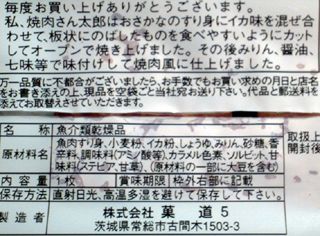 毎度お買い上げありがとうございます。
私、焼肉さん太郎はおさかなのすり身にイカ味を混ぜ合
わせて、板状にのばしたものを食べやすいようにカット
してオーブンで焼き上げました。その後みりん、醤油、
七味等で味付けして焼肉風に仕上げました。
万一品質に不都合がございましたら、お手数でもお買い求めの月日と店名
をお書き添えの上、現品を空袋ごと当社宛お送り下さい。代品と郵送料を
添えてお取替えさせていただきます。
名称 魚介類乾燥品
原材料名 魚肉すり身、小麦粉、イカ粉、しょうゆ、みりん、砂糖、香
辛料、調味料(アミノ酸等)、カラメル色素、ソルビット、甘
味料(ステビア、甘草)、(原材料の一部に大豆を含む)
内容量 1枚 賞味期限 枠外右部に記載
保存方法 直射日光、高温多湿を避けて保存して下さい。
製造者 株式会社 菓道5
茨城県常総市古間木1503-3
取扱上
開封後